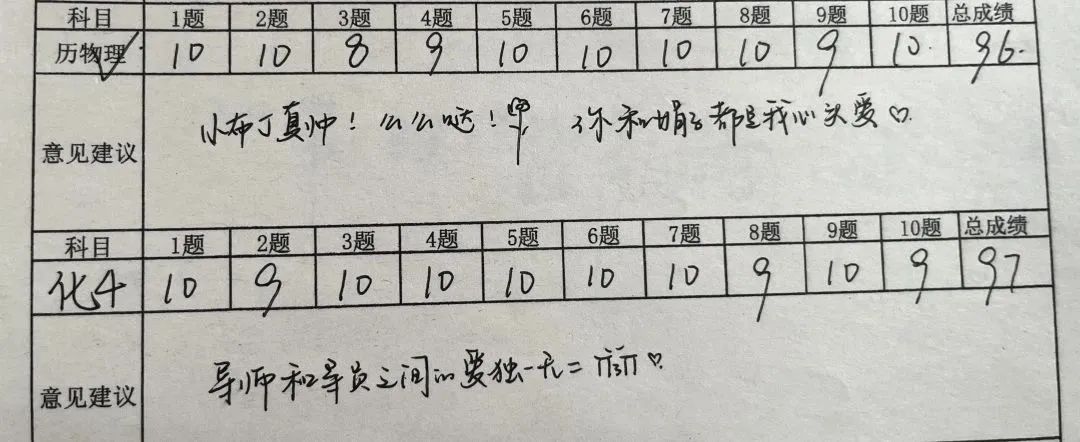 科目 1题 2题 3题 4题 5题 6题 7题 8题 9题 10题 总成绩
历物理 10 10 8 9 10 10 10 10 9 10. 96.
意见建议 小布丁真帅！么么哒！ 你和娟子都是我心头爱♡.
科目 1题 2题 3题 4题 5题 6题 7题 8题 9题 10题 总成绩
化4 10 9 10 10 10 10 10 9 10 9 97
意见建议 导师和导员之间的爱独一无二♡.